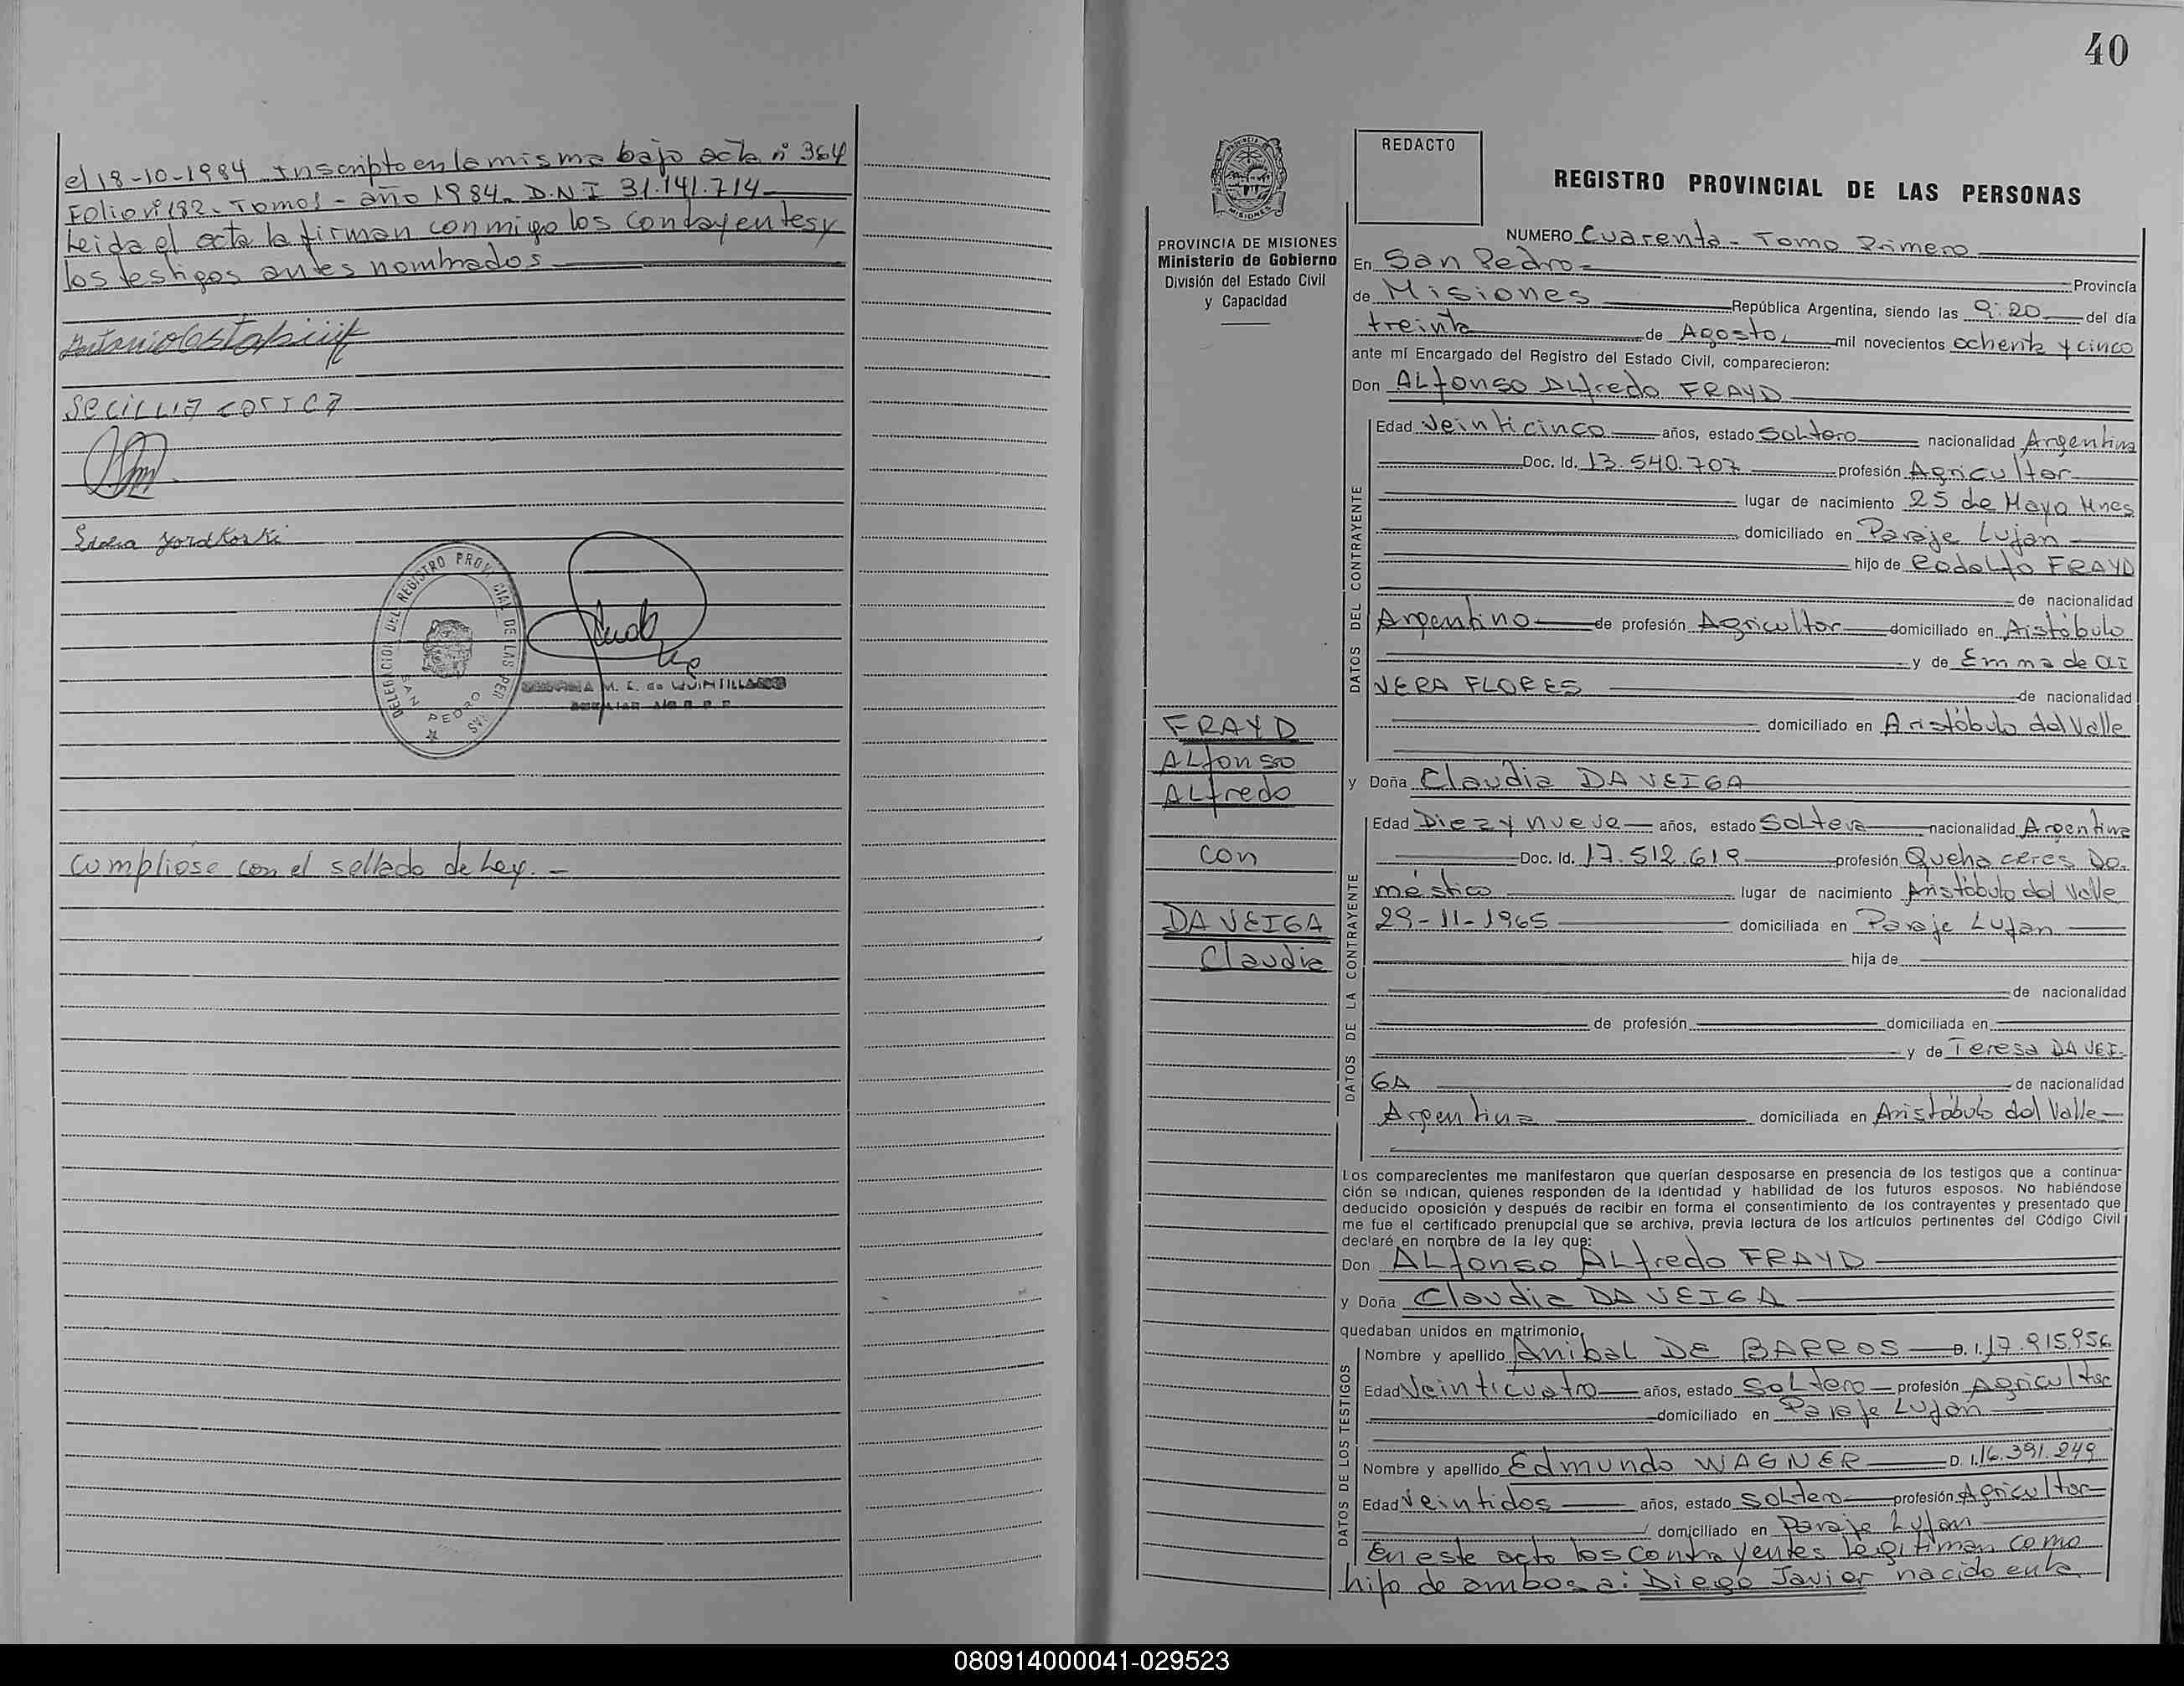 el 18-10-1984 Inscripto en la misma bajo acta n° 364
Folio n° 182. Tomo 1 - año 1984. D.N.I 31.141.714
Leida el acta la firman conmigo los contrayentes y
los testigos antes nombrados
SeCILLIA COSTCA
DELEGACION DEL REGISTRO PROVINCIAL DE LAS PERSONAS
SAN PEDRO
M. E. de QUINTILLANO
Cumpliose con el sellado de Ley. -
40
REDACTO
REGISTRO PROVINCIAL DE LAS PERSONAS
PROVINCIA DE MISIONES
Ministerio de Gobierno
División del Estado Civil
y Capacidad
NUMERO Cuarenta - Tomo Primero
En San Pedro - Provincia
de Misiones República Argentina, siendo las 9:20 del día
treinta de Agosto, mil novecientos ochenta y cinco
ante mí Encargado del Registro del Estado Civil, comparecieron:
Don ALfonso ALfredo FRAYD
DATOS DEL CONTRAYENTE
Edad Veinticinco años, estado SoLtero nacionalidad Argentina
Doc. Id. 13.540.707 profesión Agricultor
lugar de nacimiento 25 de Mayo Mnes
domiciliado en Paraje Lujan
hijo de RodoLfo FRAYD
de nacionalidad
Argentino de profesión Agricultor domiciliado en Aristóbulo
y de Emma de OLI
VERA FLORES de nacionalidad
domiciliado en Aristóbulo del Valle
FRAYD
ALfonso
ALfredo
con
DA VEIGA
Claudia
y Doña Claudia DA VEIGA
DATOS DE LA CONTRAYENTE
Edad Diez y nueve años, estado SoLtera nacionalidad Argentina
Doc. Id. 17.512.619 profesión Queha ceres Do.
méstico lugar de nacimiento Aristóbulo del Valle
29-11-1965 domiciliada en Paraje Lujan
hija de
de nacionalidad
de profesión domiciliada en
y de Teresa DA VEI-
GA de nacionalidad
Argentina domiciliada en Aristóbulo del Valle
Los comparecientes me manifestaron que querían desposarse en presencia de los testigos que a continua-
ción se indican, quienes responden de la identidad y habilidad de los futuros esposos. No habiéndose
deducido oposición y después de recibir en forma el consentimiento de los contrayentes y presentado que
me fue el certificado prenupcial que se archiva, previa lectura de los artículos pertinentes del Código Civil
declaré en nombre de la ley que:
Don ALfonso ALfredo FRAYD
y Doña Claudia DA VEIGA
quedaban unidos en matrimonio,
DATOS DE LOS TESTIGOS
Nombre y apellido AnibaL DE BARROS D. I. 17.915.956
Edad Veinticuatro años, estado SoLtero profesión Agricultor
domiciliado en Paraje Lujan
Nombre y apellido Edmundo WAGNER D. I. 16.391.249
Edad Veintidos años, estado SoLtero profesión Agricultor
domiciliado en Paraje Lujan
En este acto los contrayentes legitiman como
hijo de ambos a: Diego Javier nacido en la
080914000041-029523